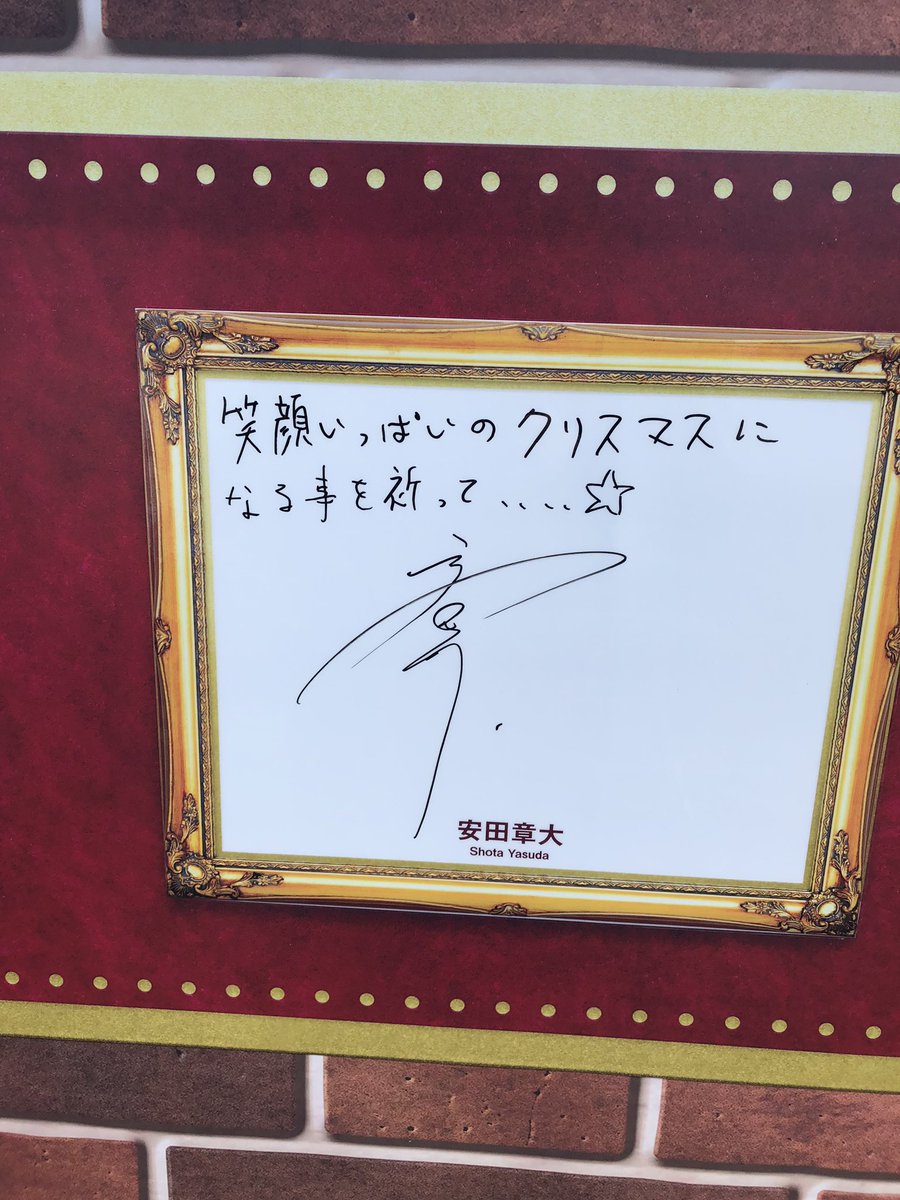 笑顔いっぱいのクリスマスに
なる事を祈って、、、、☆
章
安田章大
Shota Yasuda